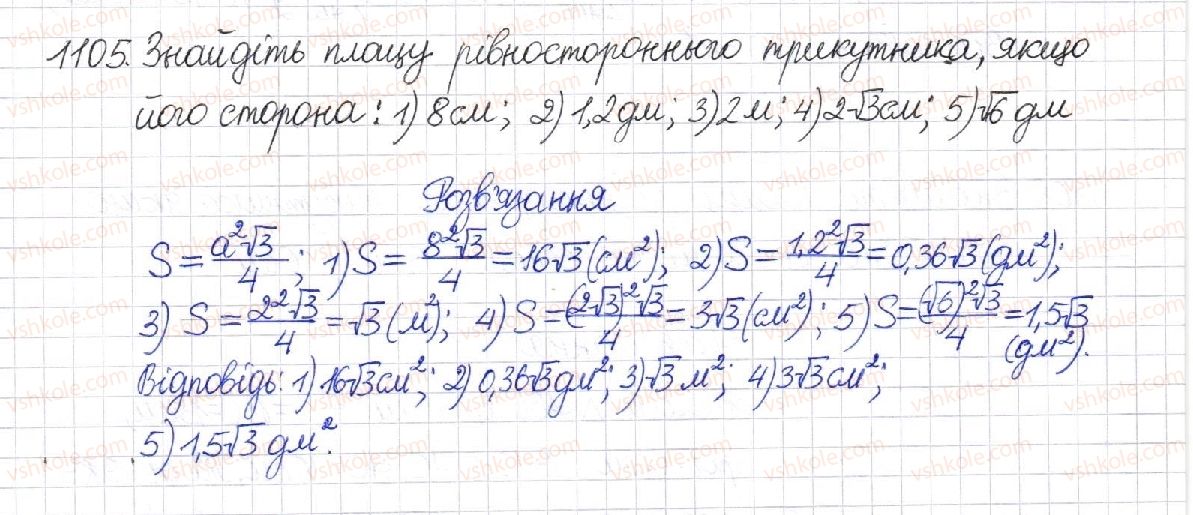 1105. Знайдіть площу рівностороннього трикутника, якщо
його сторона: 1) 8 см; 2) 1,2 дм; 3) 2 м; 4) 2√3 см; 5) √6 дм
Розв'язання
S = a²√3/4; 1) S = 8²√3/4 = 16√3 (см²); 2) S = 1,2²√3/4 = 0,36√3 (дм²);
3) S = 2²√3/4 = √3 (м²); 4) S = (2√3)²√3/4 = 3√3 (см²); 5) S = (√6)²√3/4 = 1,5√3
(дм²).
Відповідь: 1) 16√3 см²; 2) 0,36√3 дм²; 3) √3 м²; 4) 3√3 см²;
5) 1,5√3 дм².